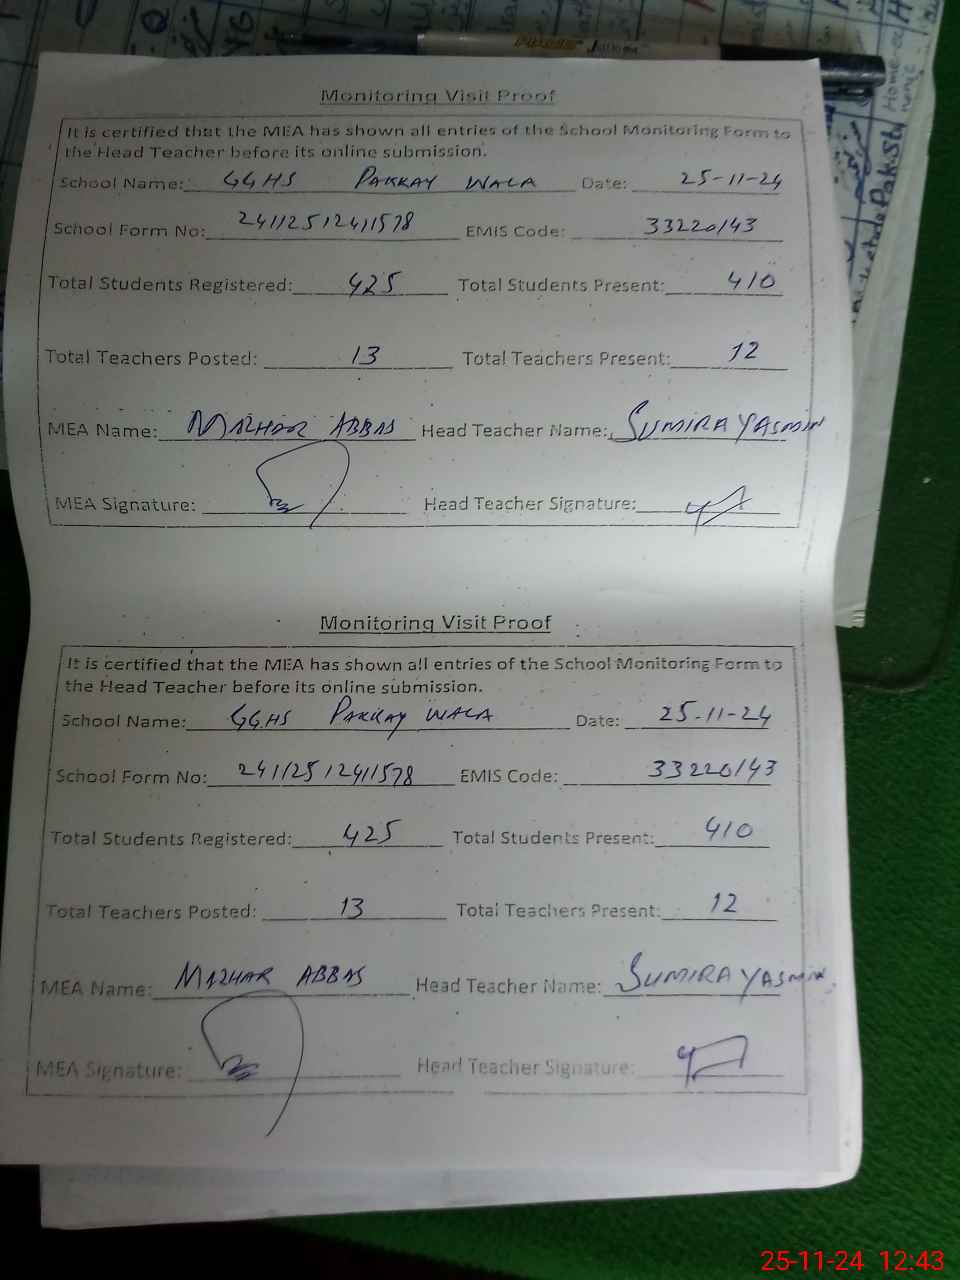 Monitoring Visit Proof
It is certified that the MEA has shown all entries of the School Monitoring Form to
the Head Teacher before its online submission.
School Name: GGHS PAKKAY WALA Date: 25-11-24
School Form No: 24112512411578 EMIS Code: 33220143
Total Students Registered: 425 Total Students Present: 410
Total Teachers Posted: 13 Total Teachers Present: 12
MEA Name: MAZHAR ABBAS Head Teacher Name: SUMIRA YASMIN
MEA Signature: Head Teacher Signature:
Monitoring Visit Proof
It is certified that the MEA has shown all entries of the School Monitoring Form to
the Head Teacher before its online submission.
School Name: GGHS PAKKAY WALA Date: 25-11-24
School Form No: 24112512411578 EMIS Code: 33220143
Total Students Registered: 425 Total Students Present: 410
Total Teachers Posted: 13 Total Teachers Present: 12
MEA Name: MAZHAR ABBAS Head Teacher Name: SUMIRA YASMIN
MEA Signature: Head Teacher Signature:
25-11-24 12:43